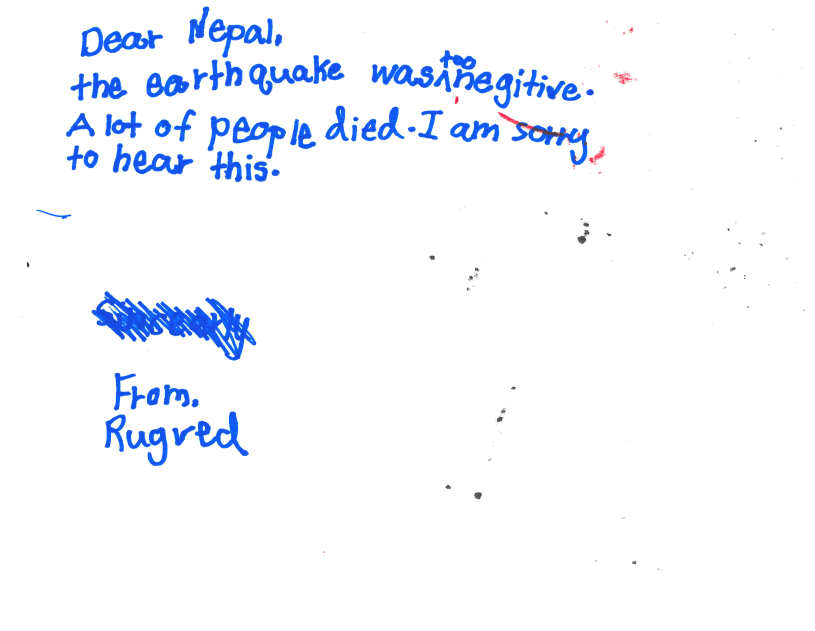 Dear Nepal,
the earthquake was too negitive.
A lot of people died. I am sorry
to hear this.
From.
Rugved